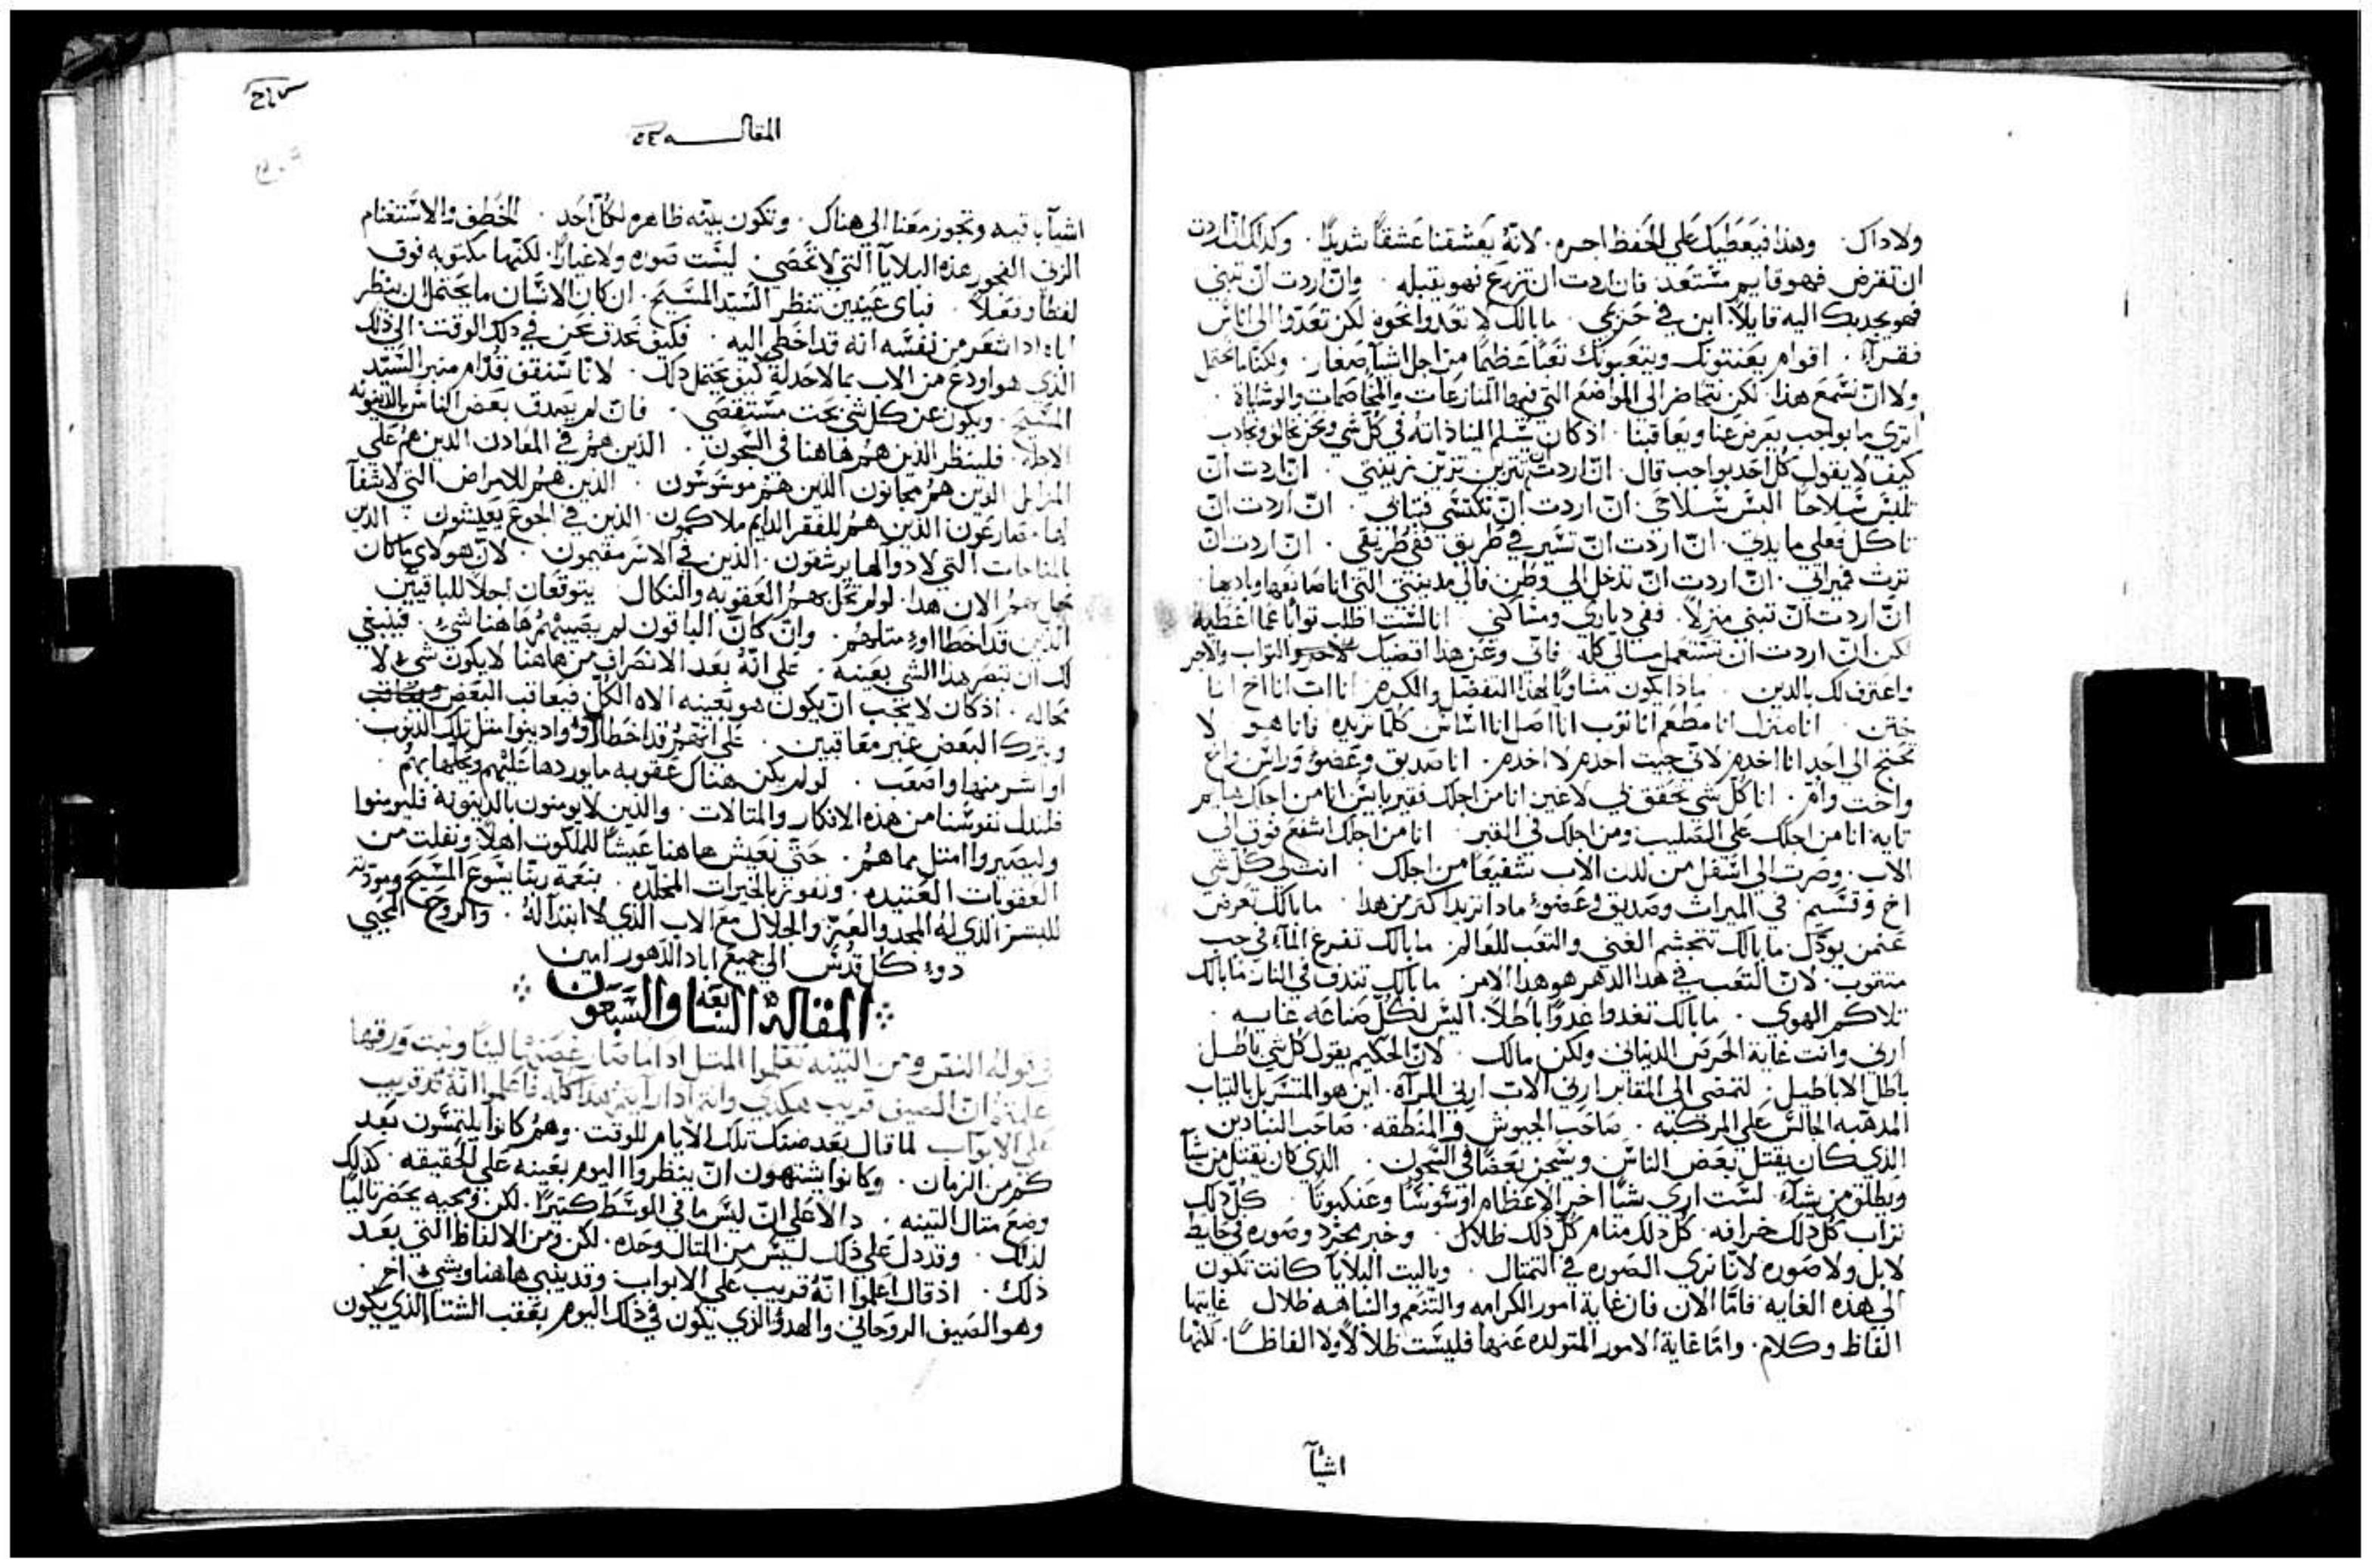 ولا داك. وهذا فيعطيك علي الحفظ اجره. لانه يعشقنا عشقًا شديدًا. وكدلك ان اردت
ان تقرض فهو قايم مستعد. فان اردت ان تزرع فهو يقبله. وان اردت ان تبني
فهو يجدبك اليه قايلًا. ابن في حيزي. ما بالك لا تعدوا نحوه لكن تعدوا الي اناس
فقرآء. اقوام يعنتونك ويتعبونك تعبًا عظيمًا من اجل اشيآ صغار. ولكنا ما نحتمل
ولا ان نسمع هذا لكن نتحاضر الي المواضع التي فيها المنازعات والمخاصمات والوشاية.
اتري ما بواجب يعرض عنا ويعاقبنا. اذ كان يسلم الينا ذاته في كل شي ونحن نخالف ونجادب
كيف لا يقول كل احد بواجب قال. ان اردت ان تتزين تزين بزينتي. ان اردت ان
تلبس سلاحًا البس سلاحي. ان اردت ان تكتسي فثيابي. ان اردت ان
تاكل فعلي مايدتي. ان اردت ان تسير في طريق ففي طريقي. ان اردت ان
ترث فميراتي. ان اردت ان تدخل الي وطن فالي مدينتي التي انا صانعها وباديها.
ان اردت ان تبني منزلًا. ففي دياري ومساكني انا لست اطلب ثوابًا عما اعطيه
لكن ان اردت ان تستعمل مالي كله فاني وعن هدا اقضيك الثواب والاجر
واعترف لك بالدين. مادا يكون مساويًا لهدا التفضل والكرم. انا اب انا اخ انا
ختن. انا منزل انا مطعم انا ثوب انا اصل انا اساس كلما تريده فانا هو لا
تحتج الي احد انا اخدم لاني جيت اخدم لا اخدم. انا صديق وعضو وراس واخ
واخت وام. انا كل شي انا من اجلك فقير انا من اجلك هايم
تايه انا من اجلك علي الصليب ومن اجلك في القبر. انا من اجلك اشفع فوق الي
الاب. وصرت الي اسفل من لدن الاب شفيعًا من اجلك. انت لي كل شي
اخ وقسيم في الميراث وصديق وعضو. مادا تريد اكثر من هدا. ما بالك تعرض
عن من يودك. ما بالك تتجشم الغني والتعب للعالم. ما بالك تفرغ المآ في جب
متقوب. لان التعب في هدا الدهر هو هدا الامر. ما بالك تندف في النار ما بالك
تلاكم الهوي. ما بالك تعدوا عدوًا باطلًا. اليس لكل صناعه غايه.
ارني وانت غاية الحرص الدنياني ولكن مالك. لان الحكيم يقول كل شي باطل
باطل الاباطيل. لتمضي الي المقابر ارني الاب ارني المراه. اين هو المتسربل بالتياب
المدهبه الجالس علي المركبه. صاحب الجيوش والمنطقه. صاحب
الذي كان يقتل بعض الناس ويسجن بعضًا في السجون. الذي كان يقتل من يشآ
ويطلق من يشآء. لست اري شيًا اخر الا عظام او سوسًا وعنكبوتًا. كل دلك
تراب كل دلك خرافه. كل دلك منام كل دلك ظلال. وخبر مجرد وصوره في حايط
لا بل ولا صوره لانا نري الصوره في التمتال. وياليت البلايا كانت تكون
الي هذه الغايه فاما الان فان غاية امور الكرامه والتنعم والنباهه ظلال غايتها
الفاظ وكلام. واما غاية الامور المتولده عنها فليست ظلالًا ولا الفاظًا. لكنها
اشيآ
المقاله
اشيآ باقيه وتجوز معنا الي هناك. وتكون بينه ظاهره لكل احد. الخطف والاستغنام
الزني الفجور هذه البلايآ التي لا تحصي. ليست صوره ولا غبارًا. لكنها مكتوبه فوق
لفظًا وفعلًا. فباي عينين ننظر السيد المسيح. ان كان الانسان ما يحتمل ان ينظر
اباه ادا شعر من نفسه انه قد اخطي اليه. فكيف نحدق نحن في دلك الوقت. الي ذلك
الذي هو اودع من الاب بما لا حد له كيف نحتمل دلك. لانا سنقف قدام منبر السيد
المسيح. ويكون عن كل شي بحث مستقصي. فان لم يصدق بعض الناس بالدينونه
فلينظر الذين هم هاهنا في السجون. الذين هم في المعادن الدين هم علي
المزابل الدين هم مجانون الدين هم موسوسون. الذين هم للامراض التي لا شفآ
لها. مصارعون الذين هم للفقر الدايم ملاكمون. الذين في الجوع يعيشون. الذين
بالمناحات التي لا دوآ لها يرشقون. الذين في الاسر مقيمون. لان هولاي ما كان
يحل بهم الان هدا. لو لم تحل بهم العقوبه والنكال يتوقعان اجلًا للباقيين
الذين قد اخطاوا متلهم. وان كان الباقون لم يصيبهم هاهنا شيء. فينبغي
لك ان تبصر هدا الشي بعينه. علي انه بعد الانصراف من هاهنا لا يكون شيء لا
محاله. اذ كان لا يجب ان يكون هو بعينه الاه الكل فيعاقب البعض
ويترك البعض غير معاقبين. علي انهم قد اخطاوا وادنبوا متل تلك الدنوب
او اشر منها واصعب. لو لم يكن هناك عقوبه ما يوردها عليهم ويحلها بهم.
فلندلل نفوسنا من هذه الافكار والمتالات. والذين لا يومنون بالدينونه فليومنوا
وليصيروا امتل مما هم. حتي نعيش هاهنا عيشًا للملكوت اهلًا ونفلت من
العقوبات العتيده. ونفوز بالخيرات المخلده. بنعمة ربنا يسوع المسيح ومودته
للبشر الذي له المجد والعز والجلال مع الاب الذي لا ابتدا له. والروح المحيي
دوء كل قدس الي جميع اباد الدهور امين
المقالة السابعه والسبعون
في قوله النقي ومن التينه تعلموا المتل ادا ما صار غصنها لينًا ونبت ورقها
علمتم ان الصيف قريب هكدي وانتم ادا رايتم هدا كله فاعلموا انه قد قريب
علي الابواب لما قال بعد ضنك تلك الايام للوقت. وهم كانوا يلتمسون بعد
كم من الزمان. وكانوا يشتهون ان ينظروا اليوم بعينه علي الحقيقه. كذلك
وضع متال التينه. دالًا علي ان ليس ما في الوسط كتيرًا. لكن ومجيه يحضر تاليًا
لذلك. وقد دل علي ذلك ليس من المتال وحده. لكن ومن الالفاظ التي بعد
ذلك. اذ قال اعلموا انه قريب علي الابواب. وقد هاهنا وبشيء اخر.
وهو الصيف الروحاني والهدو الذي يكون في ذلك اليوم بعقب الشتا الذي يكون